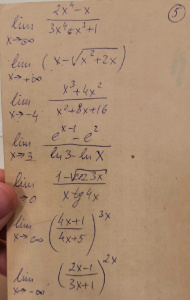 ⑤
lim x→∞ (2x⁴-x)/(3x⁴+x³+1)
lim x→+∞ (x-√(x²+2x))
lim x→-4 (x³+4x²)/(x²+8x+16)
lim x→3 (e^(x-1)-e²)/(ln3-lnx)
lim →0 (1-√ 3x)/(x tg4x)
lim x→∞ ((4x+1)/(4x+5))^(3x)
lim x→-∞ ((2x-1)/(3x+1))^(2x)